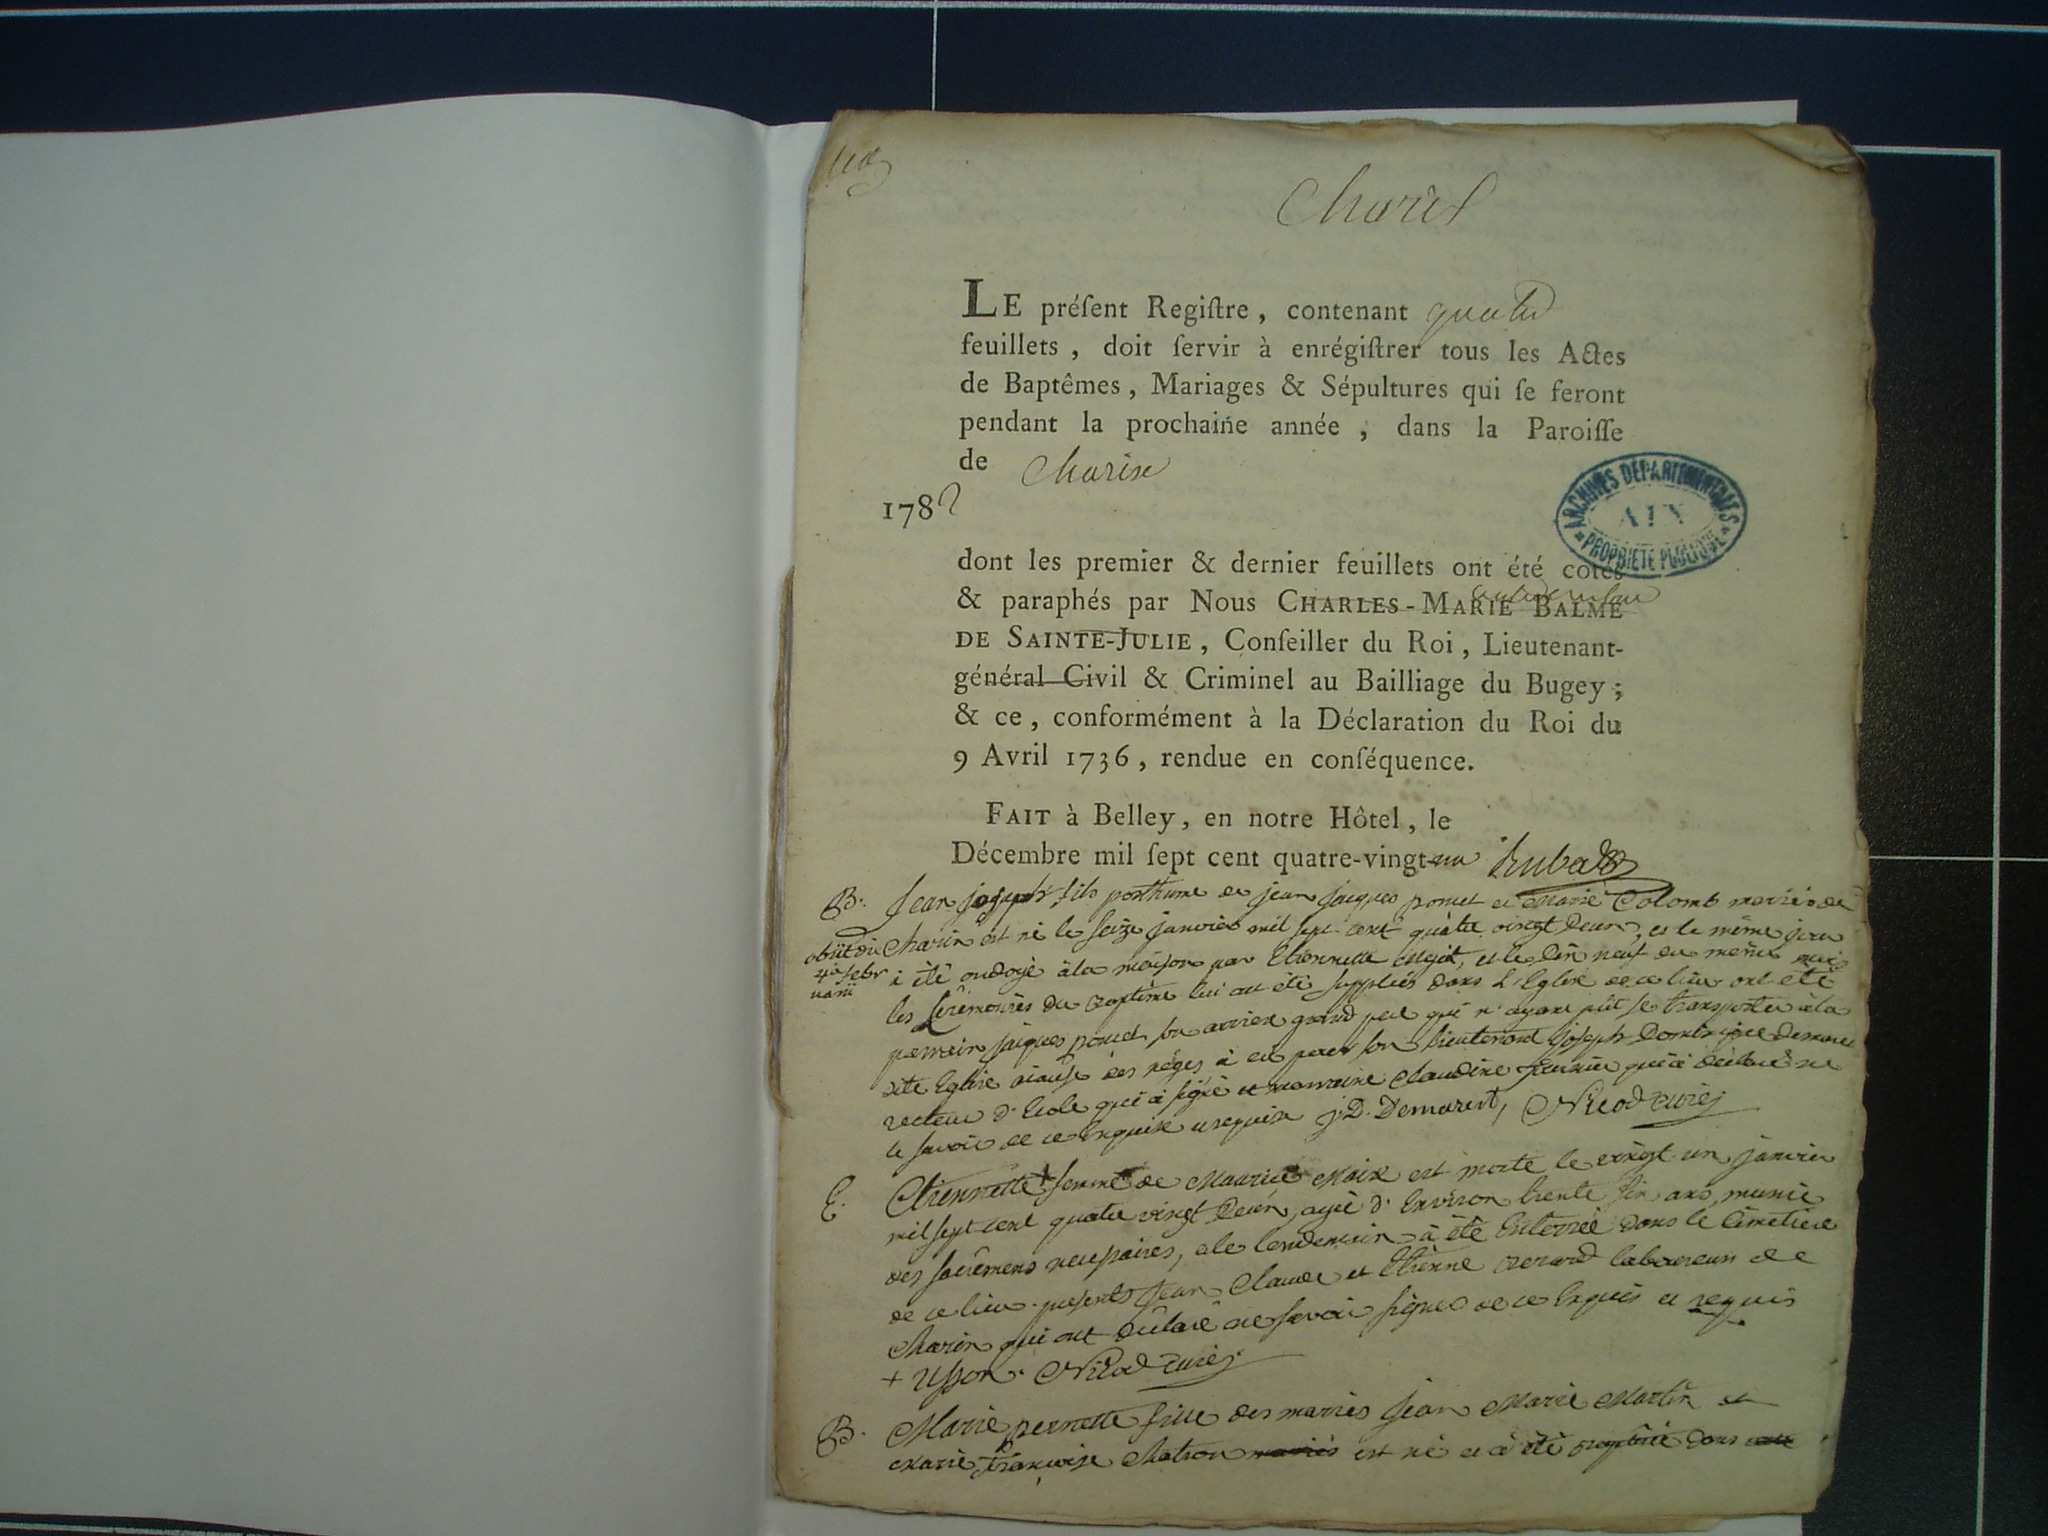 Charix
LE préſent Regiſtre, contenant quatre
feuillets, doit ſervir à enrégiſtrer tous les Actes
de Baptêmes, Mariages & Sépultures qui ſe feront
pendant la prochaine année, dans la Paroiſſe
de Charix
1782
ARCHIVES DÉPARTEMENTALES
AIN
PROPRIÉTÉ PUBLIQUE
dont les premier & dernier feuillets ont été cotés
& paraphés par Nous CHARLES-MARIE BALME
DE SAINTE-JULIE, Conſeiller du Roi, Lieutenant-
général Civil & Criminel au Bailliage du Bugey;
& ce, conformément à la Déclaration du Roi du
9 Avril 1736, rendue en conſéquence.
FAIT à Belley, en notre Hôtel, le
Décembre mil ſept cent quatre-vingt-un
B. Jean joseph fils posthume de jean jacques poncet et Marie Colomb mariés de
Charix est né le seize janvier mil sept cent quatre vingt deux, et le même jour
obiit die
4a febr
à été ondoyé à la maison par Etiennette et le dix neuf du même mois
les Cérémonies du Baptême lui ont été suppléés dans L'Eglise de ce lieu ont été
parrein jacques poncet son arriere grand pere qui n'ayant pût se transporter à la
dite Eglise àcause des néges à eu pour son lieutenant joseph Dominique Demarest
recteur d'Ecole qui à signé et marraine Claudine qui à déclaré ne
le savoir de ce Enquise et requise j:D. Demarest, Nicod curé
E. Etiennette + femme de Maurice est morte le vingt un janvier
mil sept cent quatre vingt deux, agée d'Environ trente six ans, munie
des sacrêmens necessaires, et le lendemain à été Enterrée dans le Cimetière
de ce lieu. presents Jean Claude et Etienne laboureurs de
Charix qui ont déclaré ne savoir signer de ce Enquis et requis
+ Nicod curé
B. Marie pernette fille des mariés Jean Marie Martin et
Marie françoise est né et à été baptisé dans